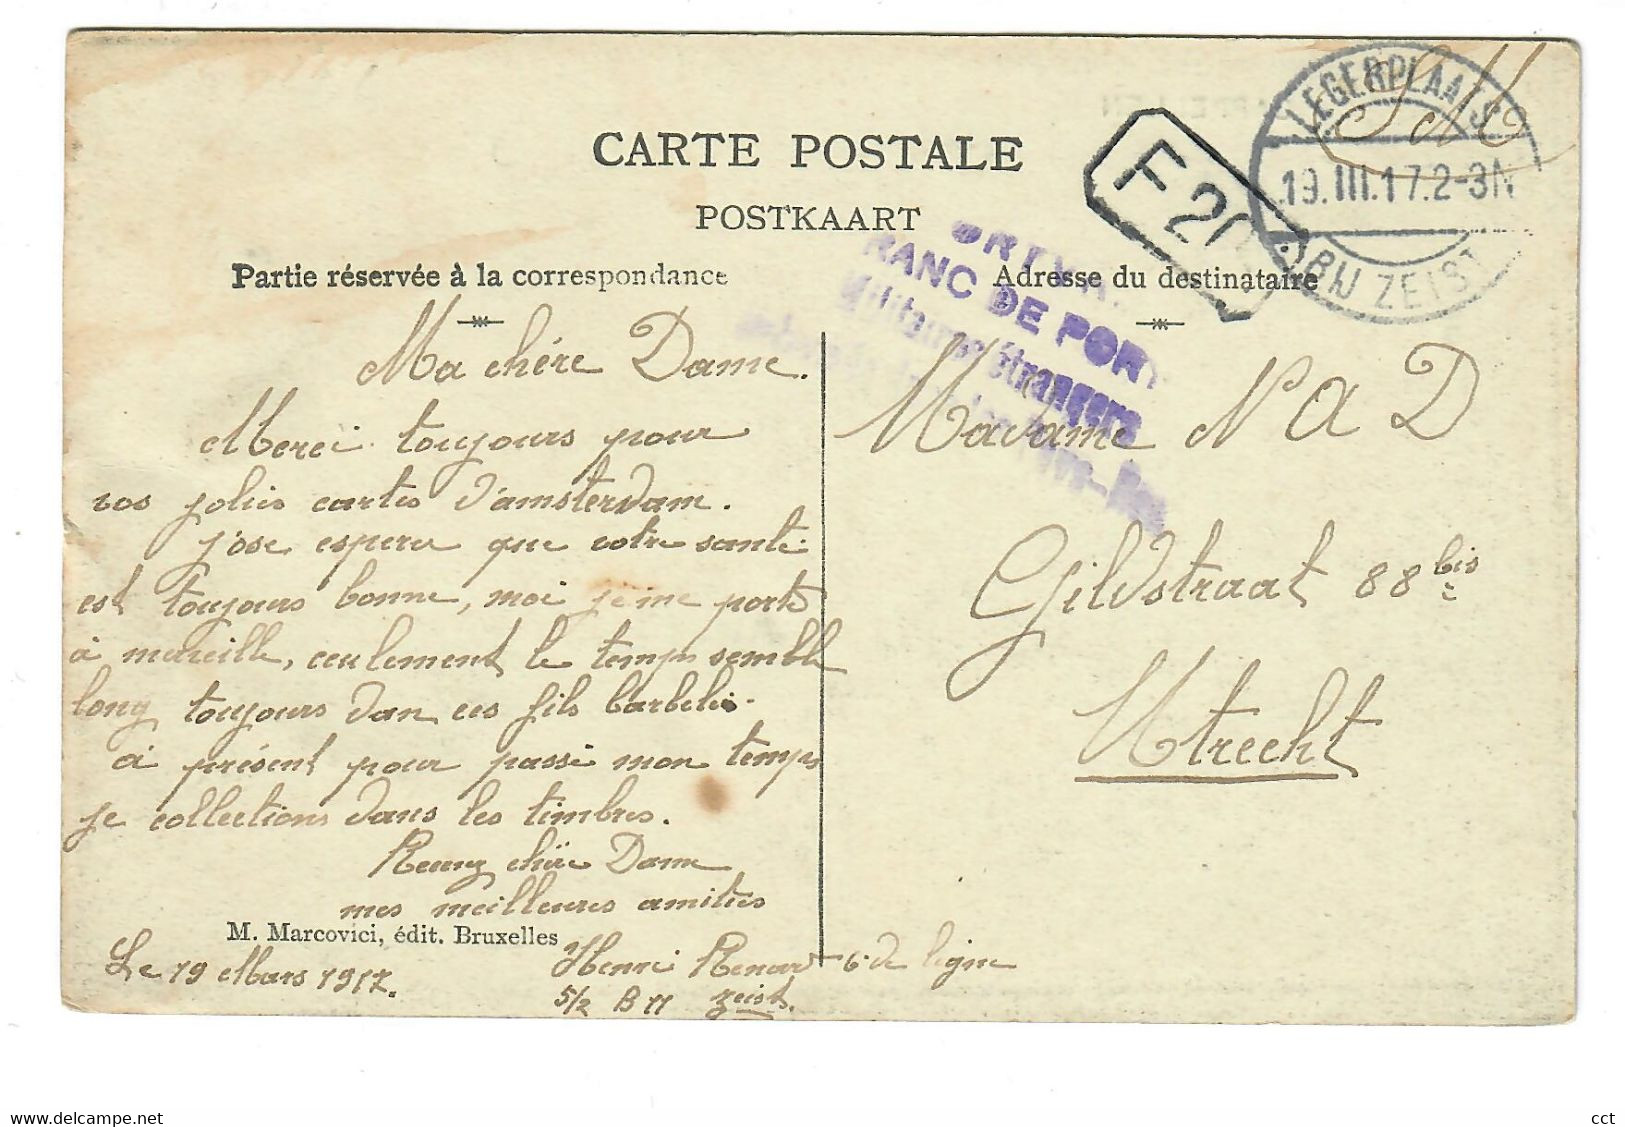 CARTE POSTALE
POSTKAART
Partie réservée à la correspondance
Adresse du destinataire
LEGERPLAATS
19.III.17.2-3N
BIJ ZEIST
F 20
S.M
RANC DE POR
Militaires étrangers
Ma chére Dame.
Merci toujours pour
vos jolies cartes d'amsterdam.
j'ose esperer que votre santé
est toujours bonne, moi je me porte
à merveille, ceulement le temps semble
long toujours dan ces fils barbelés.
à présent pour passé mon temps
je collections dans les timbres.
chère Dame
mes meilleures amitiés
M. Marcovici, édit. Bruxelles
Le 19 Mars 1917.
Henri Renard 6 de ligne
5/2 B 11 Zeist.
Madame N A D
Gildstraat 88 bis
Utrecht
www.delcampe.net
cct